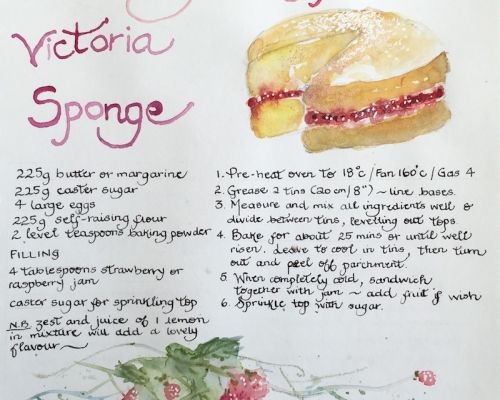 Victoria
Sponge
225g butter or margarine
225g caster sugar
4 large eggs
225g self-raising flour
2 level teaspoons baking powder
FILLING
4 tablespoons strawberry or
raspberry jam
caster sugar for sprinkling top
N.B. zest and juice of 1 lemon
in mixture will add a lovely
flavour ~
1. Pre-heat oven to 18°c / Fan 160°c / Gas 4
2. Grease 2 tins (20cm/8") ~ line bases.
3. Measure and mix all ingredients well &
divide between tins, levelling out tops.
4. Bake for about 25 mins or until well
risen. Leave to cool in tins, then turn
out and peel off parchment.
5. When completely cold, sandwich
together with jam ~ add fruit if wish
6. Sprinkle top with sugar.